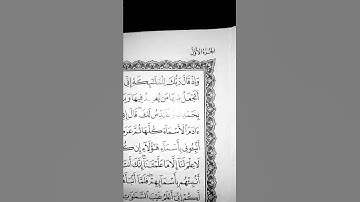 الجزء الأول
وإذ قال ربك للملئكة إني
أتجعل فيها من يفسد فيها
بحمدك ونقدس لك قال إني
ءادم الأسماء كلها ثم عرضهم
أنبئوني بأسماء هؤلاء إن كنتم
لا علم لنا إلا ما علمتنا إنك أنت
أنبئهم بأسمائهم فلما أنبأهم
لكم إني أعلم غيب السموت